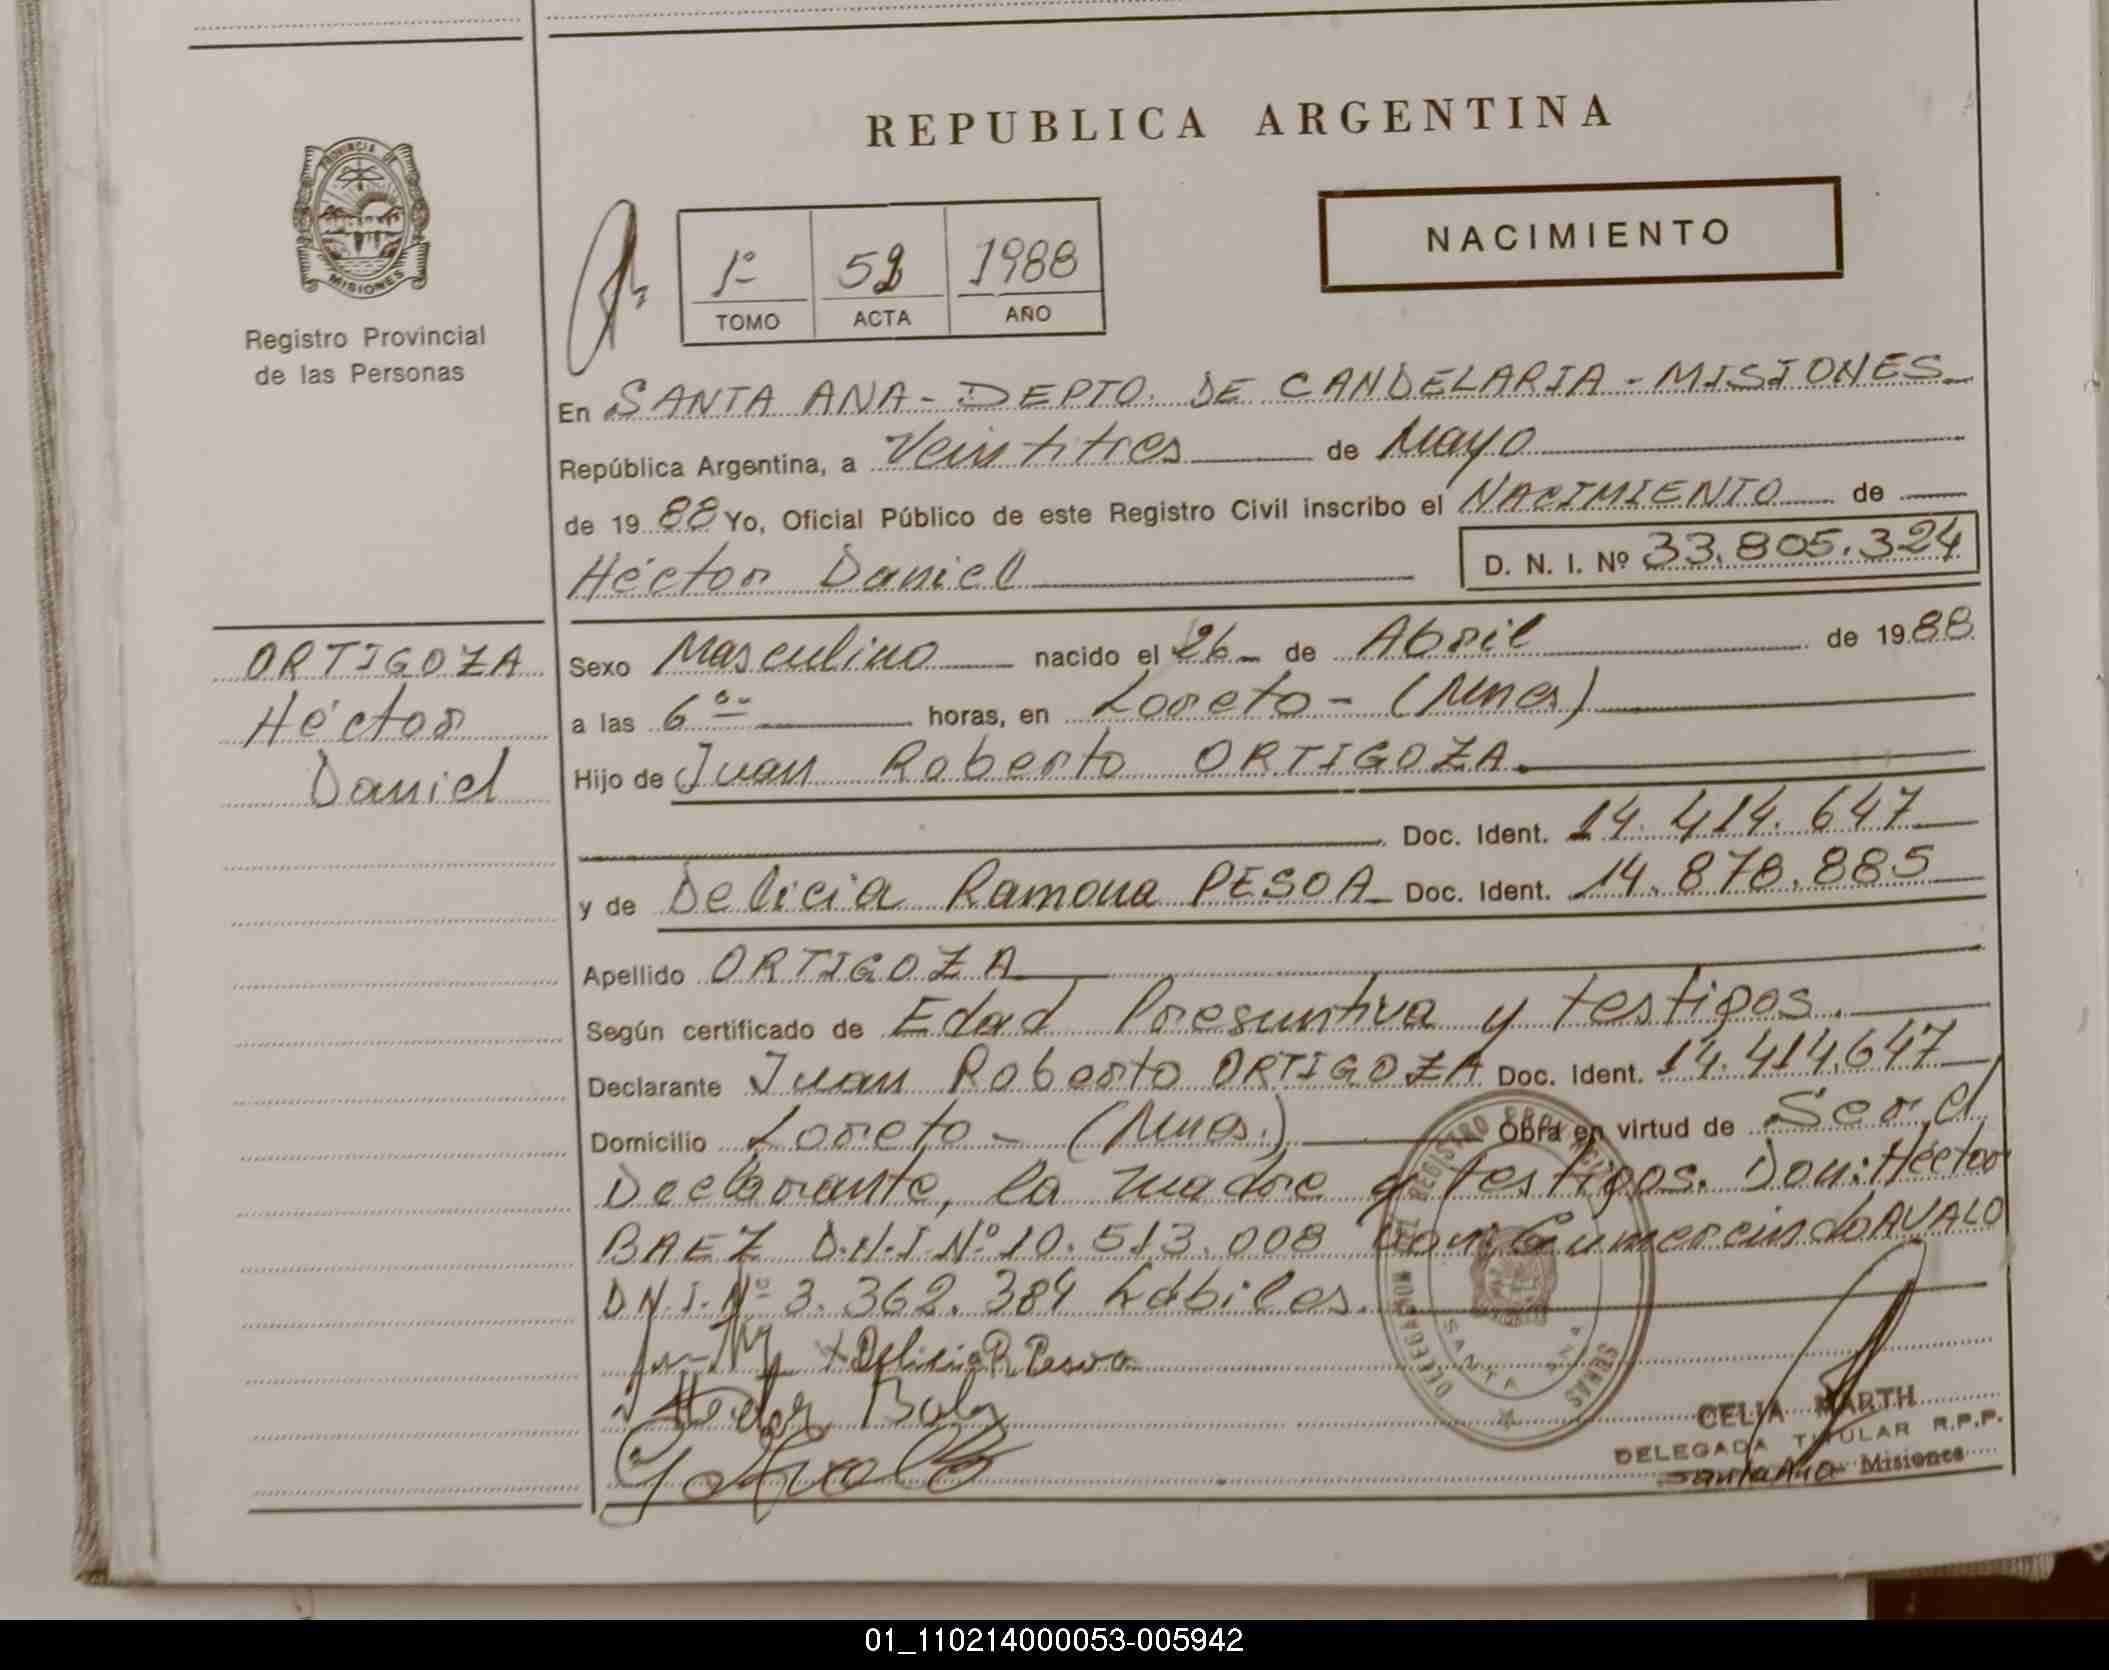 REPUBLICA ARGENTINA
PROVINCIA DE
MISIONES
Registro Provincial
de las Personas
NACIMIENTO
1º 52 1988
TOMO ACTA AÑO
En SANTA ANA - DEPTO. DE CANDELARIA - MISIONES
República Argentina, a Veintitres de Mayo
de 1988 Yo, Oficial Público de este Registro Civil inscribo el NACIMIENTO de
Héctor Daniel D. N. I. Nº 33.805.324
ORTIGOZA
Héctor
Daniel
Sexo Masculino nacido el 26 de Abril de 1988
a las 6 horas, en Loreto - (Mnes)
Hijo de Juan Roberto ORTIGOZA
Doc. Ident. 14.414.647
y de Delicia Ramona PESOA Doc. Ident. 14.878.885
Apellido ORTIGOZA
Según certificado de Edad Presuntiva y testigos.
Declarante Juan Roberto ORTIGOZA Doc. Ident. 14.414.647
Domicilio Loreto - (Mnes.) Obra en virtud de Ser el
Declarante, la madre y testigos. Don: Héctor
BAEZ D.N.I Nº 10.513.008 Don: Gumercindo AVALO
D.N.I. Nº 3.362.384 hábiles.
Delicia R Pesoa
DELEGACION DEL REGISTRO PROVINCIAL
SANTA ANA
CELIA MARTH
DELEGADA TITULAR R.P.P.
Santa Ana Misiones
01_110214000053-005942